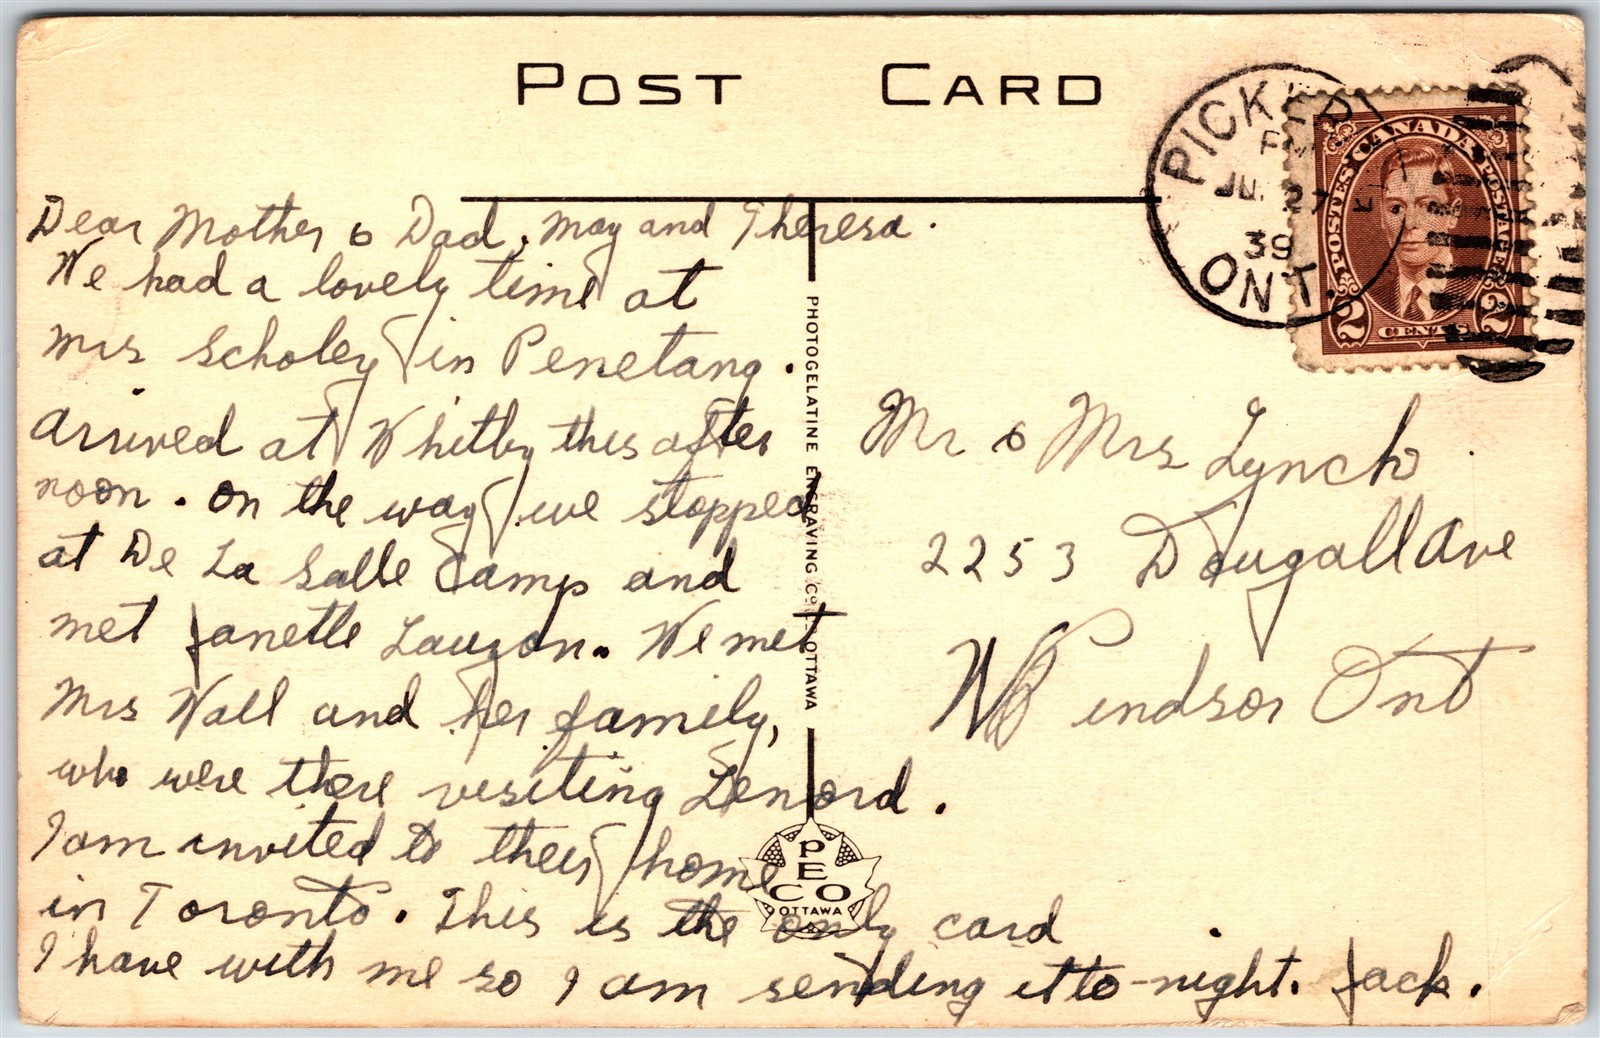 POST CARD
PICKER
PM
JU 27
39
ONT.
POSTES CANADA POSTAGE
2 CENTS 2
Dear Mother & Dad, May and Theresa.
We had a lovely time at
Mrs Scholey in Penetang.
Arrived at Whitby this after
noon. On the way we stopped
at De La Salle Camp and
met Janette Lauzon. We met
Mrs Wall and her family,
who were there visiting Lenord.
I am invited to their home
in Toronto. This is the only card
I have with me so I am sending it to-night. Jack.
PHOTOGELATINE ENGRAVING CO. OTTAWA
PECO
OTTAWA
Mr & Mrs Lynch
2253 Dougall Ave
Windsor Ont